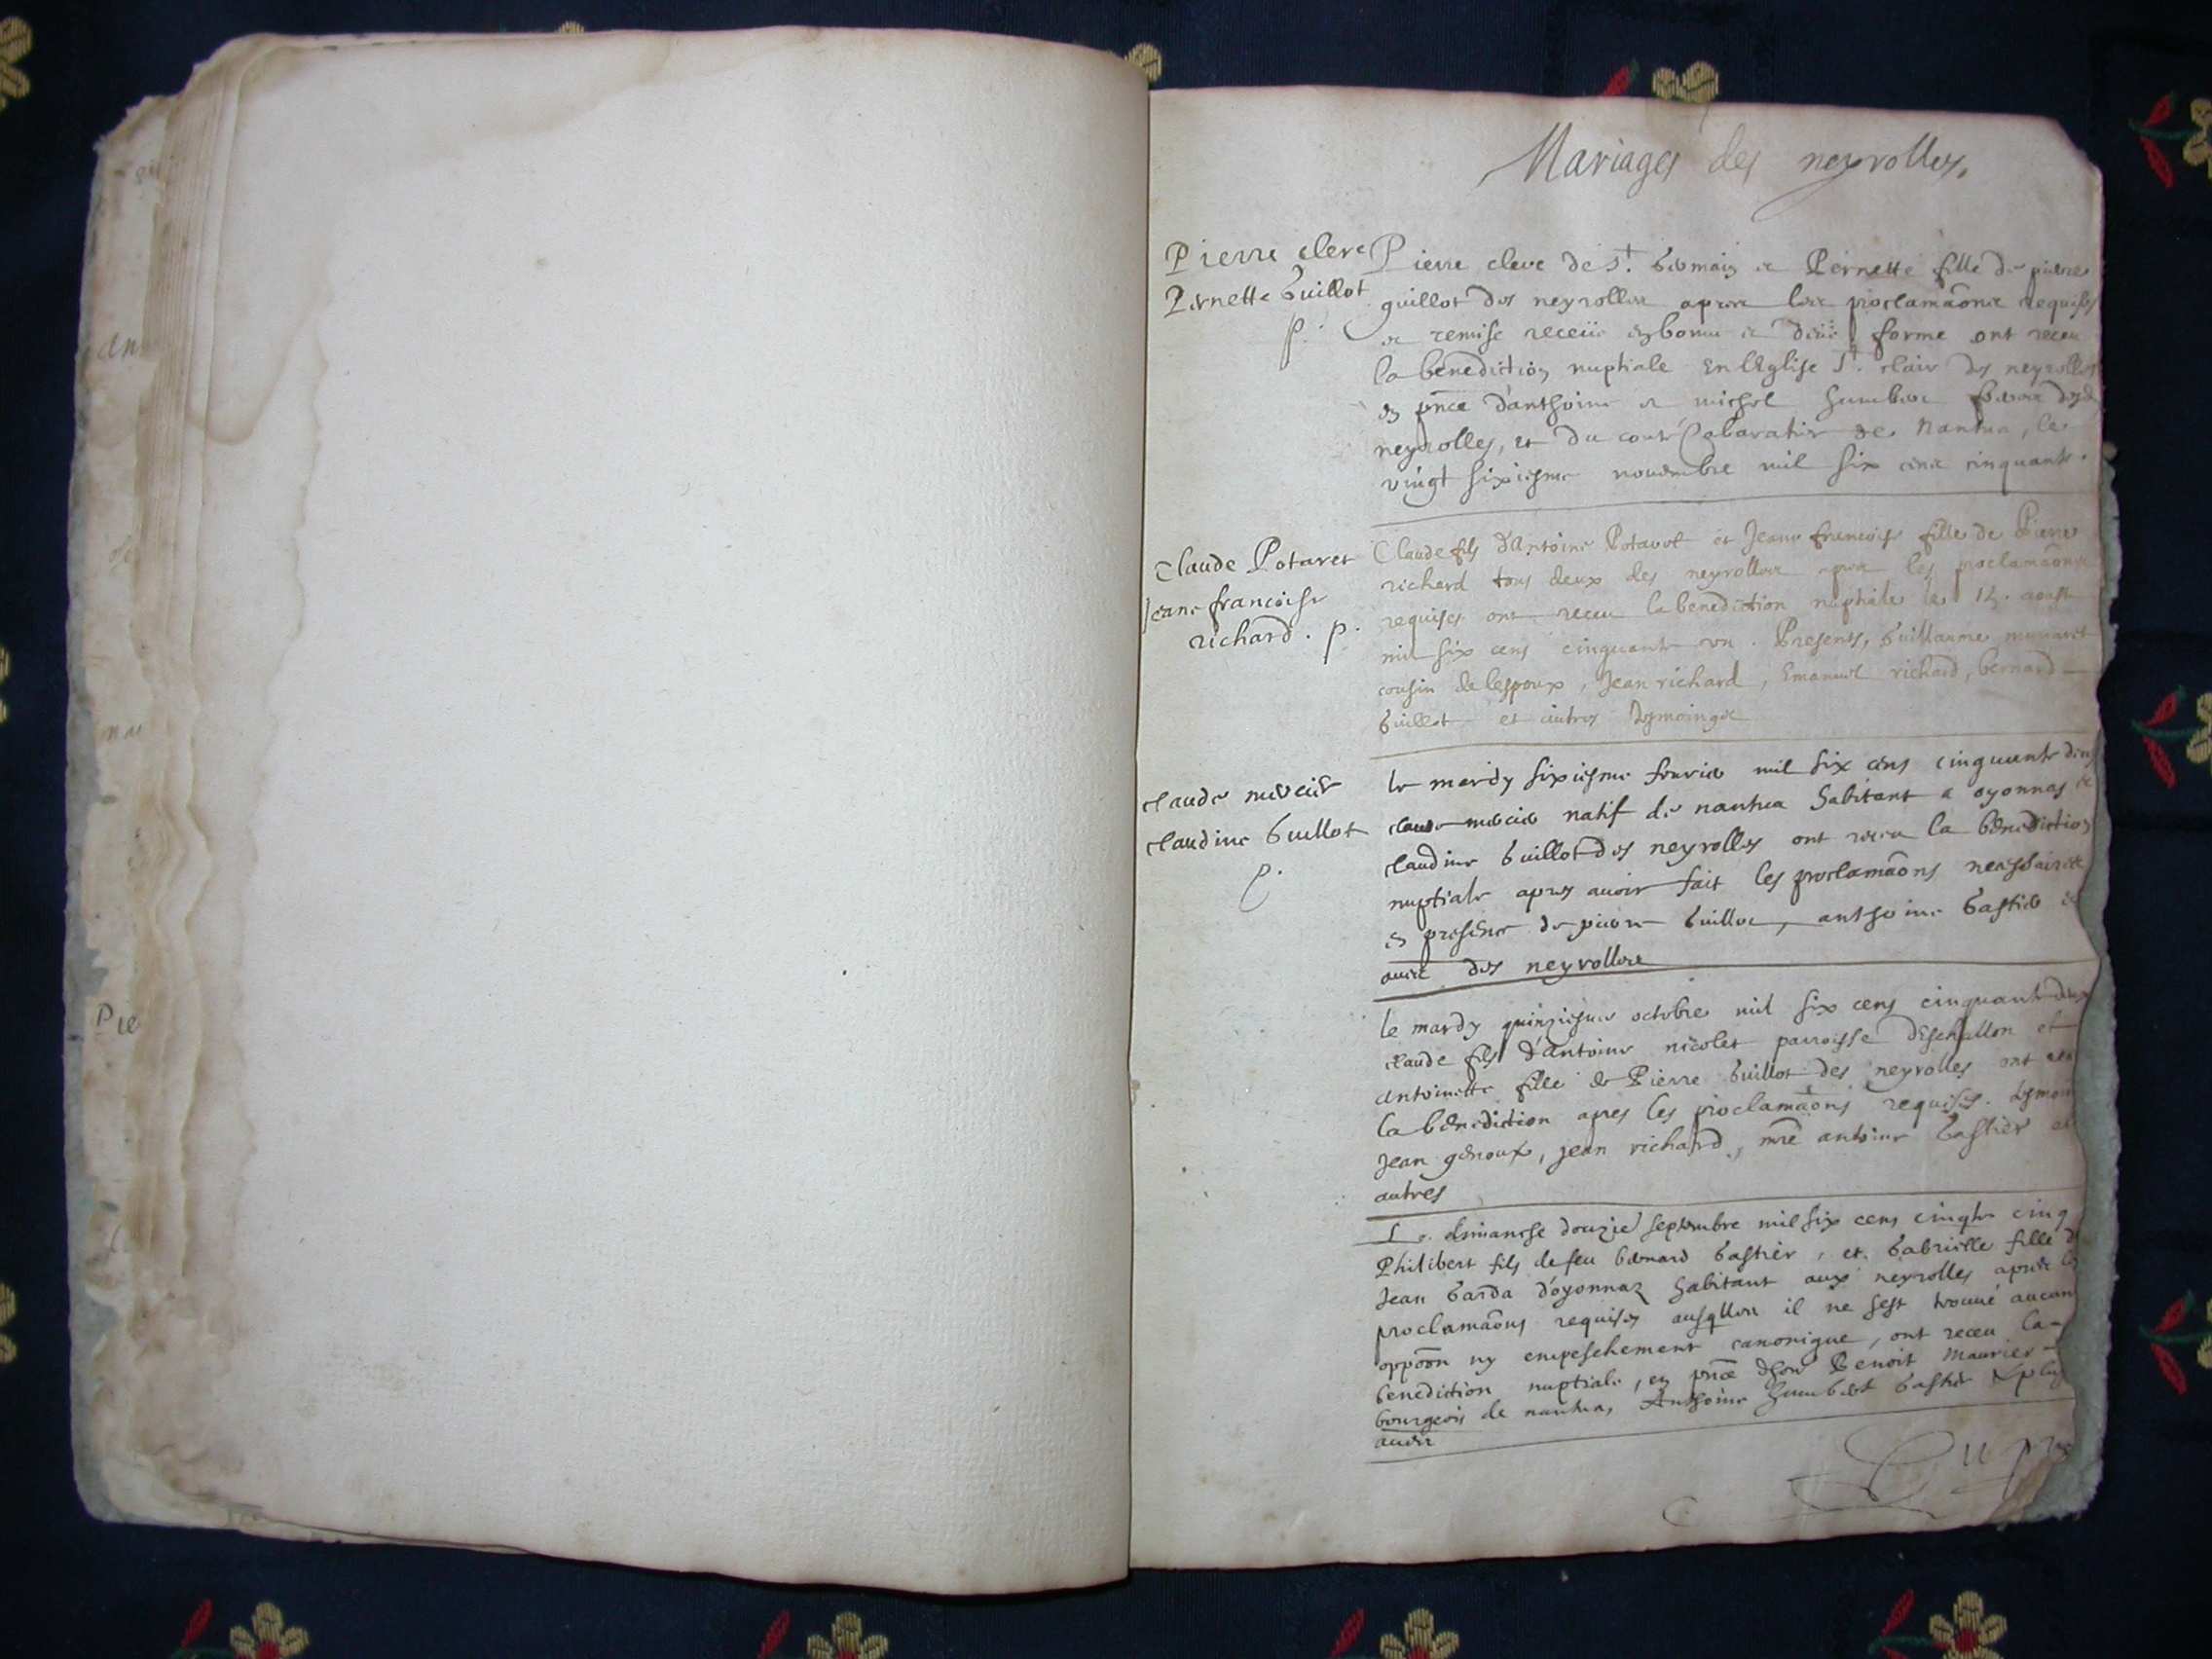 Mariages des neyrolles.
Pierre clerc
Pernette Guillot
p.
Pierre clerc de St. Germain et Pernette fille de pierre
guillot des neyrolles apres les proclamãons requises
et remise receüe en bonne et deüe forme ont receu
la benediction nuptiale En lEglise St. clair des neyrolles
en pnce danthoine et michel humbert freres desd
neyrolles, et du conte de Nantua, le
vingt sixiesme novembre mil six cens cinquante.
Claude Potavet
Jeane francoise
richard. p.
Claude fils d'Antoine Potavet et Jeane francoise fille de Pierre
richard tous deux des neyrolles apres les proclamãons
requises ont receu la benediction nuptiale le aoust
mil six cens cinquante vn. Presents, Guillaume
cousin de lespoux, Jean richard, Emanuel richard, bernard
Guillot et autres tesmoings
claude mercier
claudine Guillot
p.
le mardy sixiesme feurier mil six cens cinquante deux
claude mercier natif de nantua habitant a oyonnas et
claudine Guillot des neyrolles ont receu la benediction
nuptiale apres auoir fait les proclamãons necessaires
en presence de pierre Guillot, anthoine Gastier et
autres des neyrolles
le mardy quinziesme octobre mil six cens cinquante deux
claude fils d'Antoine nicolet parroisse dEschallon et
antoinette fille de Pierre Guillot des neyrolles ont
la benediction apres les proclamãons requises. tesmoin
Jean genoux, jean richard, mre antoine Gastier et
autres
Le dimanche douzie septembre mil six cens cinqte cinq
Philibert fils de feu bernard Gastier, et Gabrielle fille d
Jean Garda d'oyonnaz habitant aux neyrolles apres les
proclamãons requises ausqlles il ne sest trouué aucun
oppõon ny empeschement canonique, ont receu la
benediction nuptiale, en pnce dhon Benoit Maurier
bourgeois de nantua, Anthoine humbert Gastier & plus
autres
an
Pie